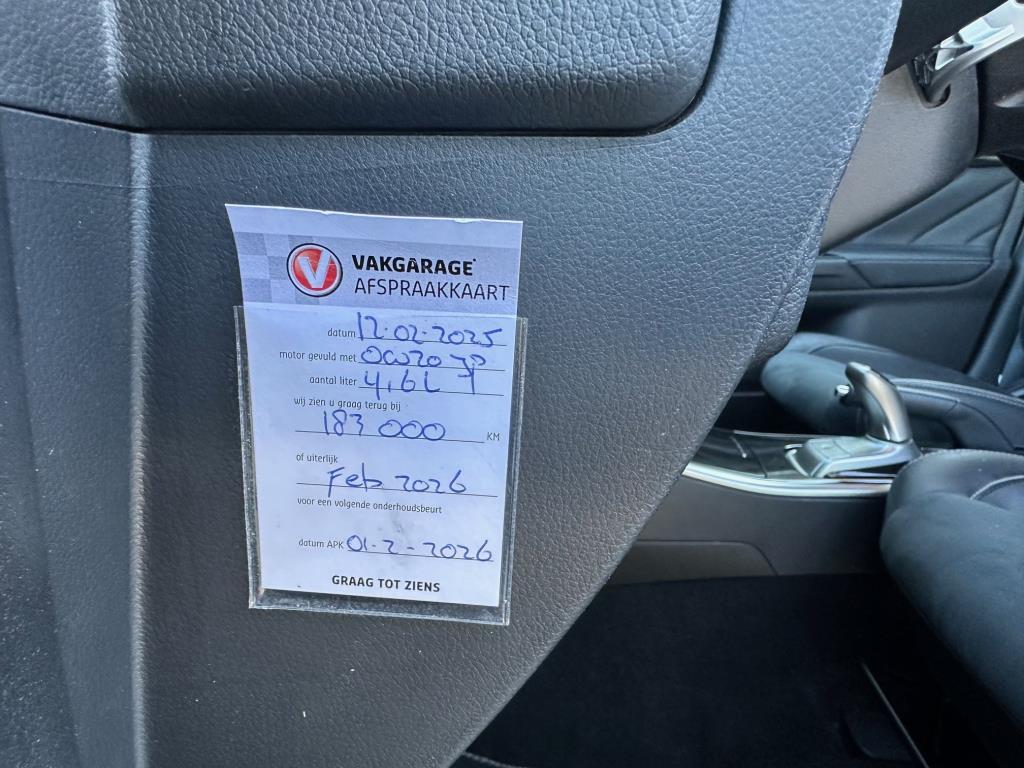 V VAKGARAGE
AFSPRAAKKAART
datum 12-02-2025
motor gevuld met 0W20 JP
aantal liter 4,6L
wij zien u graag terug bij
183 000 KM
of uiterlijk
Feb 2026
voor een volgende onderhoudsbeurt
datum APK 01-2-2026
GRAAG TOT ZIENS